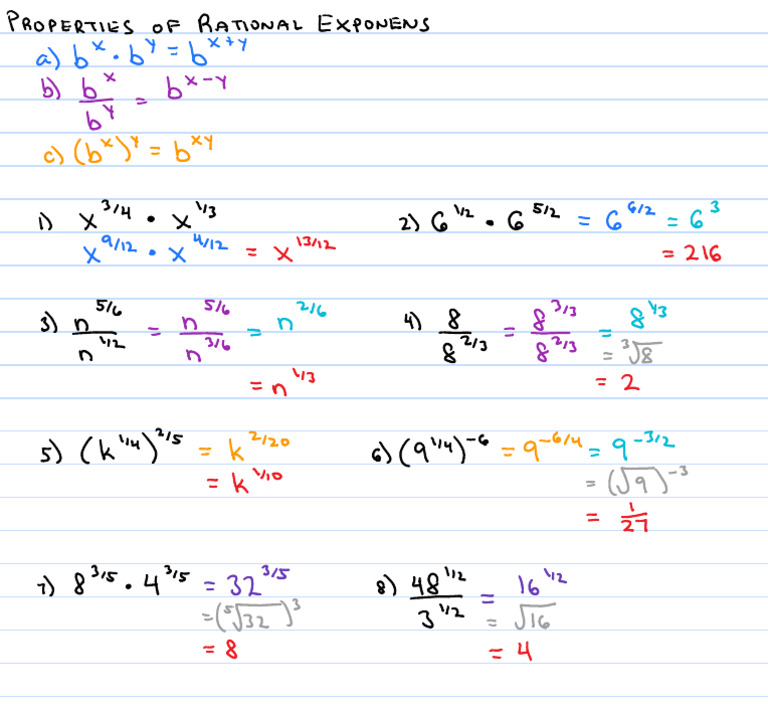 PROPERTIES OF RATIONAL EXPONENS
a) b^x · b^y = b^(x+y)
b) b^x / b^y = b^(x-y)
c) (b^x)^y = b^(xy)
1) x^(3/4) · x^(1/3)
x^(9/12) · x^(4/12) = x^(13/12)
2) 6^(1/2) · 6^(5/2) = 6^(6/2) = 6^3
= 216
3) n^(5/6) / n^(1/2) = n^(5/6) / n^(3/6) = n^(2/6)
= n^(1/3)
4) 8 / 8^(2/3) = 8^(3/3) / 8^(2/3) = 8^(1/3)
= ³√8
= 2
5) (k^(1/4))^(2/5) = k^(2/20)
= k^(1/10)
6) (9^(1/4))^(-6) = 9^(-6/4) = 9^(-3/2)
= (√9)^(-3)
= 1/27
7) 8^(3/5) · 4^(3/5) = 32^(3/5)
= (⁵√32)^3
= 8
8) 48^(1/2) / 3^(1/2) = 16^(1/2)
= √16
= 4